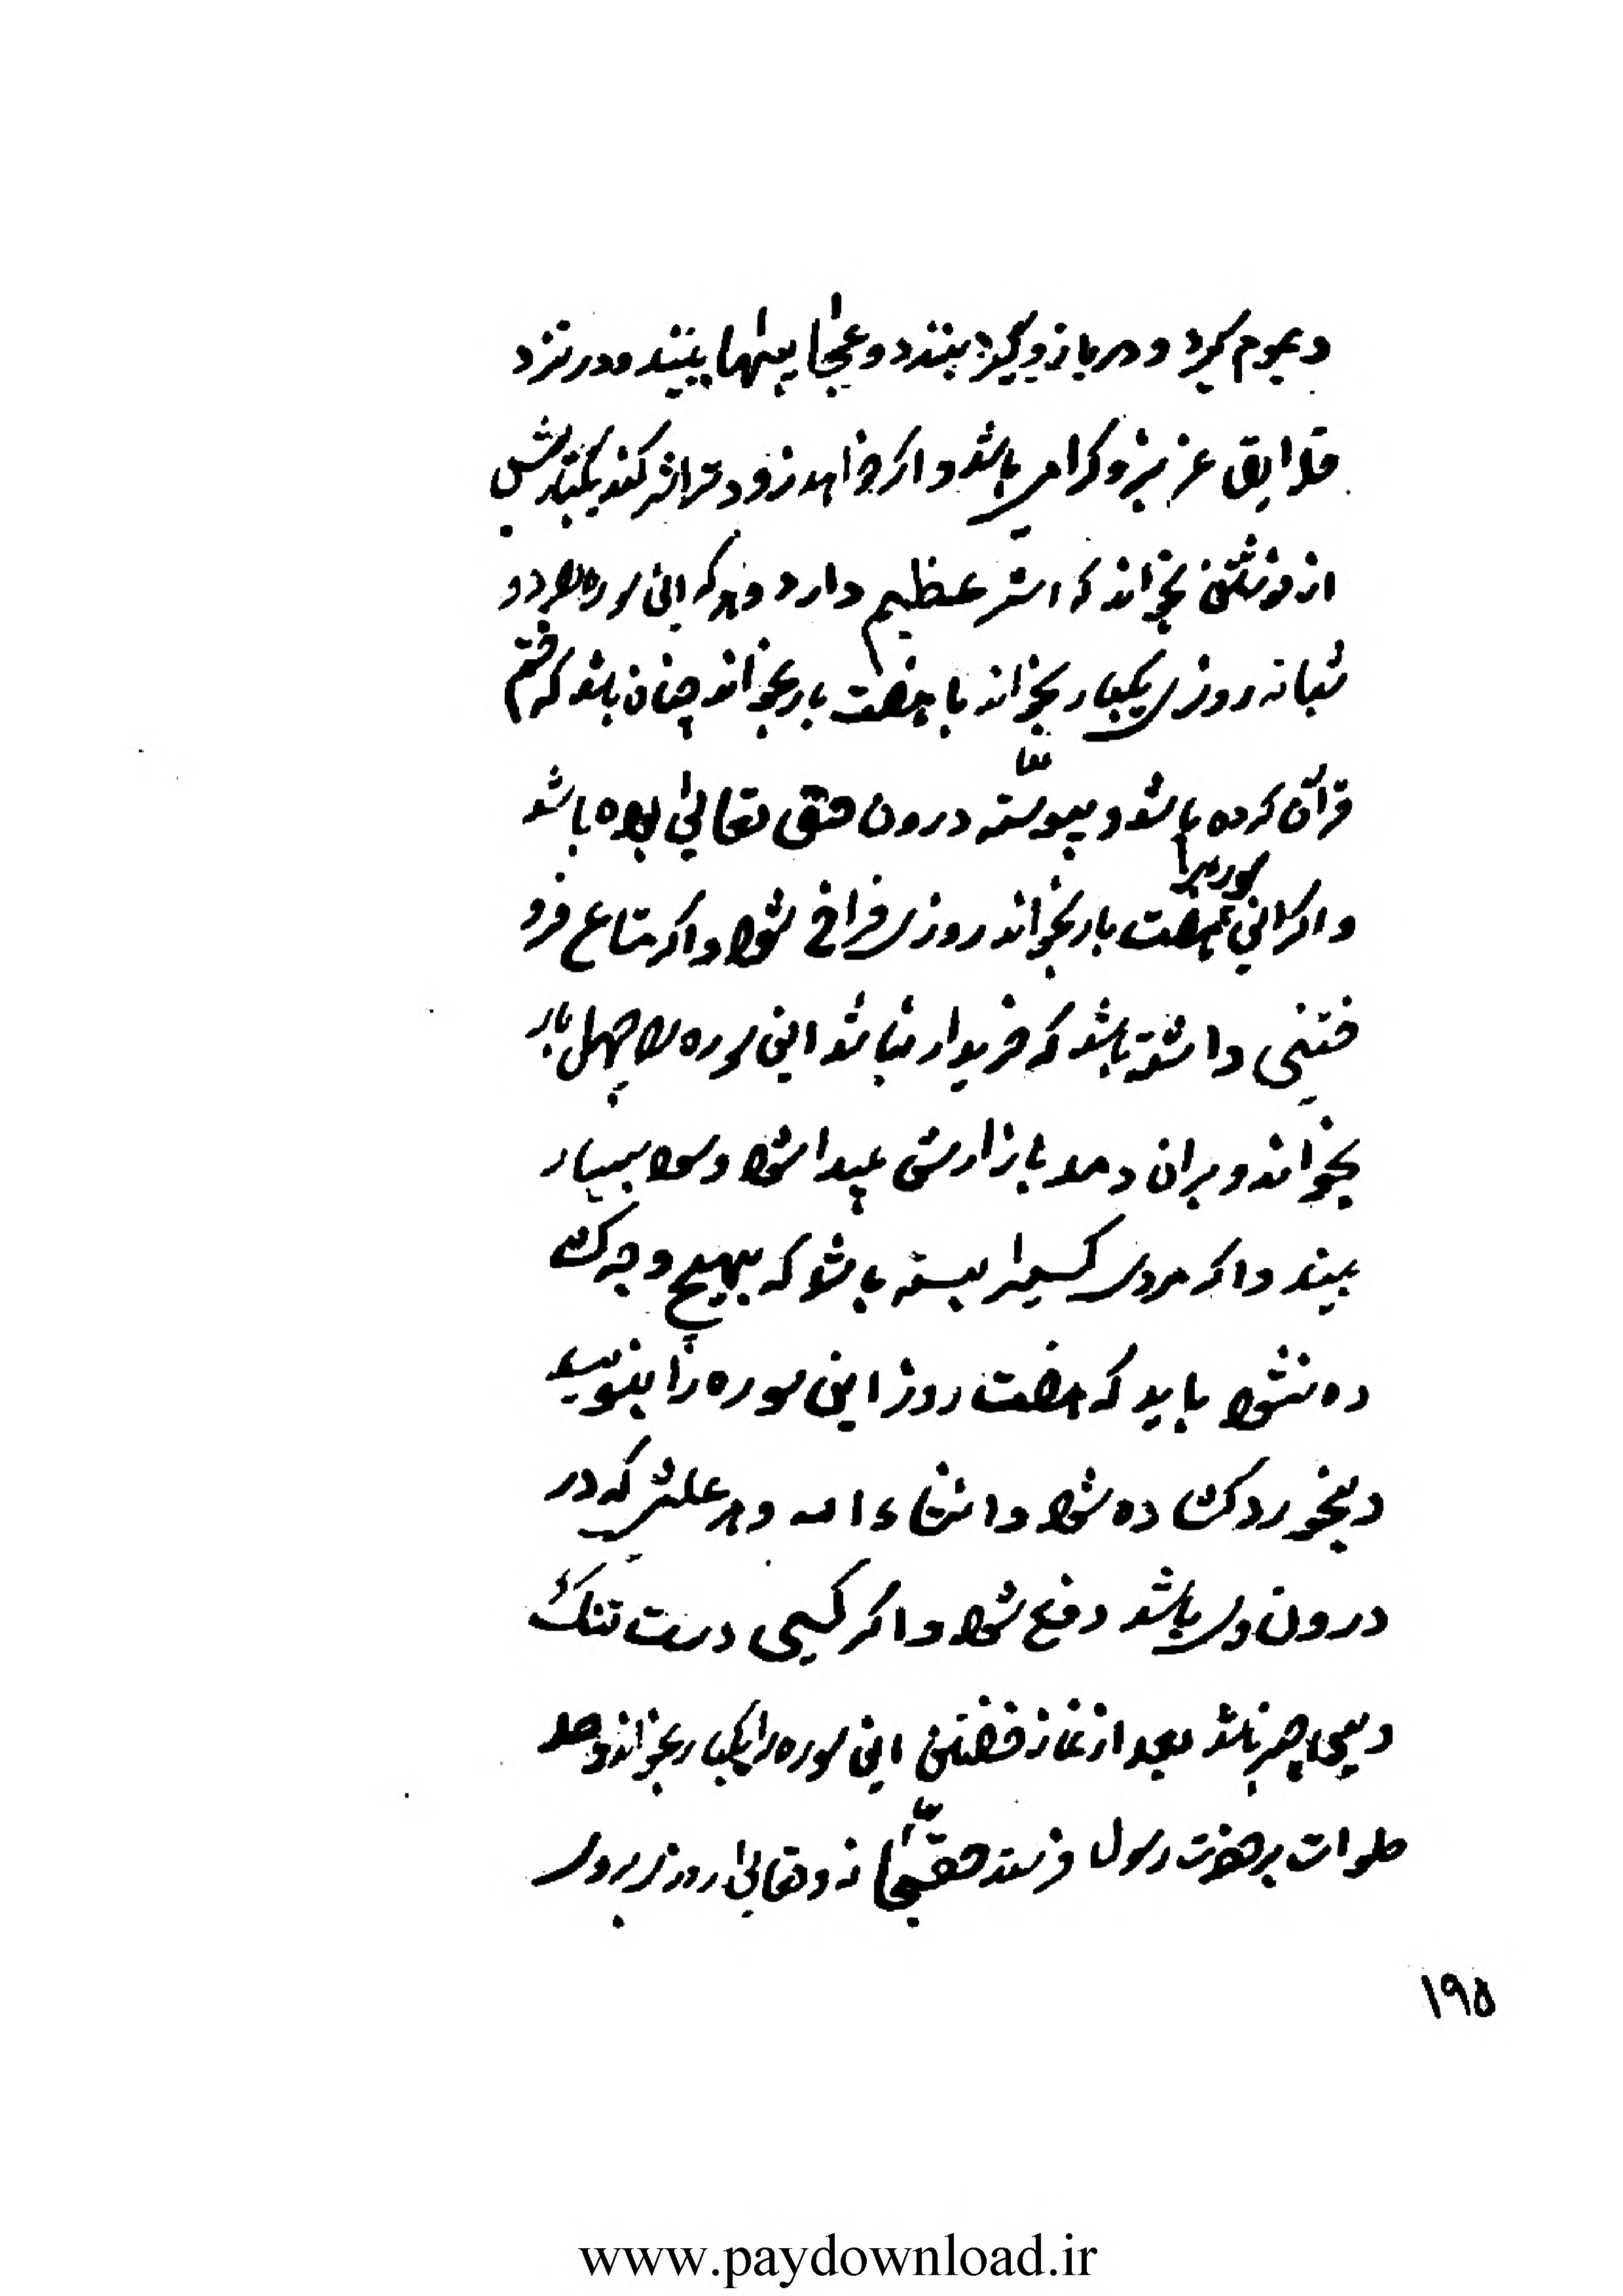 و بموم گیرد و بر بازو گیرد بندد و عجایبتها بیند و در نزد
خلایق عزیز و گرامی باشد و اگر خواهد زودتر اثر کند یکبار پیش
از نوشتن بخواند که اثر عظیم دارد و هر که این سوره را در دو
شبانه روزی یکبار بخواند یا هفت بار بخواند چنان باشد که ختم
قرآن کرده باشد و پیوسته در ون حق تعالی بوده باشد
و اگر این سوره را هفت بار بخواند روزی فراخ شود و اگر متاع فرو
ختنی داشته باشد که خریدار نباشد این سوره را چهل بار
بخواند و بران دمد بازارش پیدا شود و سود بسیار
بیند و اگر مردی کسیرا بسته باشد که بهیچ وجه گشا
ده نشود باید که هفت روز این سوره را بنویسد
و بخورد گشاده شود انشاء الله و هر علتی که در
درون وی باشد دفع شود و اگر کسی دست تنگ
و بی چیز باشد بعد از نماز خفتن این سوره را یکبار بخواند و صد
صلوات بر حضرت رسول فرستد حق سبحانه و تعالی روزی بر وی
۱۹۵
www.paydownload.ir